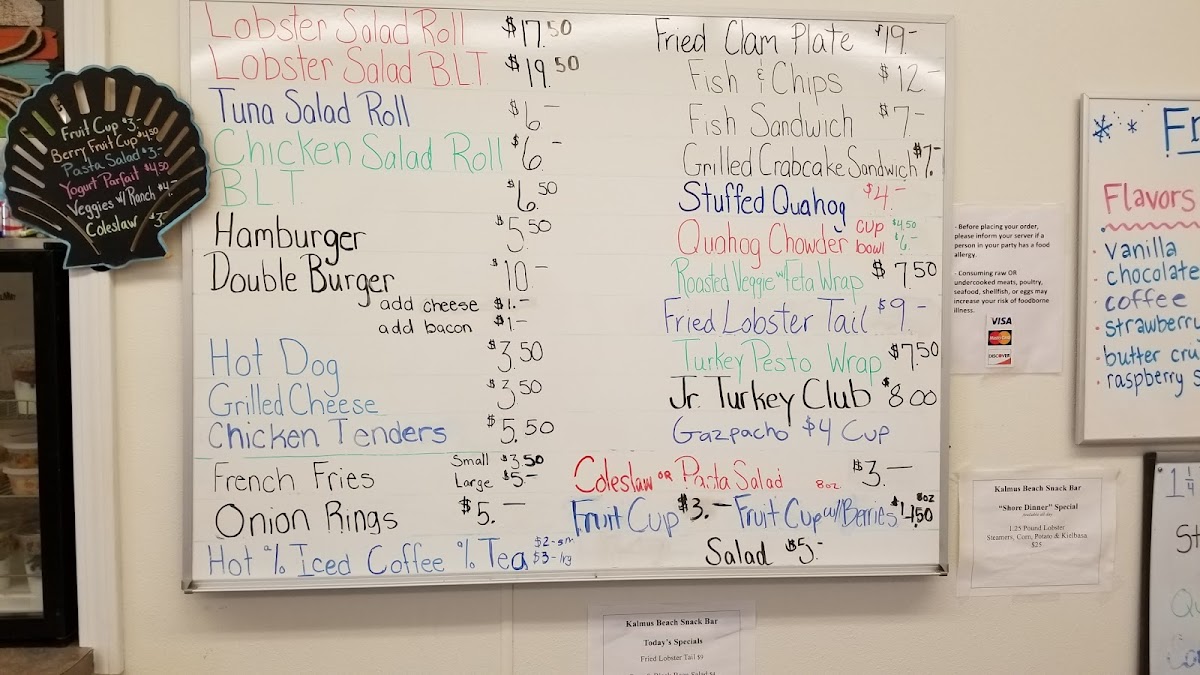 Fruit Cup $3.-
Berry Fruit Cup $4.50
Pasta Salad $3.-
Yogurt Parfait $4.50
Veggies w/ Ranch $4.-
Coleslaw $3.
Lobster Salad Roll $17.50
Lobster Salad BLT $19.50
Tuna Salad Roll $6-
Chicken Salad Roll $6.-
BLT $6.50
Hamburger $5.50
Double Burger $10.-
add cheese $1.-
add bacon $1.-
Hot Dog $3.50
Grilled Cheese $3.50
Chicken Tenders $5.50
French Fries Small $3.50
Large $5.-
Onion Rings $5.-
Hot % Iced Coffee % Tea $2-sm
$3-lrg
Fried Clam Plate $19.-
Fish & Chips $12.-
Fish Sandwich $7.-
Grilled Crabcake Sandwich $7.-
Stuffed Quahog $4.-
Quahog Chowder cup $4.50
bowl $6.-
Roasted Veggie w/ Feta Wrap $7.50
Fried Lobster Tail $9.-
Turkey Pesto Wrap $7.50
Jr. Turkey Club $8.00
Gazpacho $4 Cup
Coleslaw OR Pasta Salad 8oz. $3.-
Fruit Cup $3.- Fruit Cup w/ Berries 8oz $4.50
Salad $5.-
- Before placing your order,
please inform your server if a
person in your party has a food
allergy.
- Consuming raw OR
undercooked meats, poultry,
seafood, shellfish, or eggs may
increase your risk of foodborne
illness.
VISA
MasterCard
DISCOVER
Kalmus Beach Snack Bar
"Shore Dinner" Special
1.25 Pound Lobster
Steamers, Corn, Potato & Kielbasa
$25
Kalmus Beach Snack Bar
Today's Specials
Fried Lobster Tail $9
Fr
Flavors
• vanilla
• chocolate
• coffee
• strawberry
• butter cru
• raspberry s
1 1/4
St
Q
Co